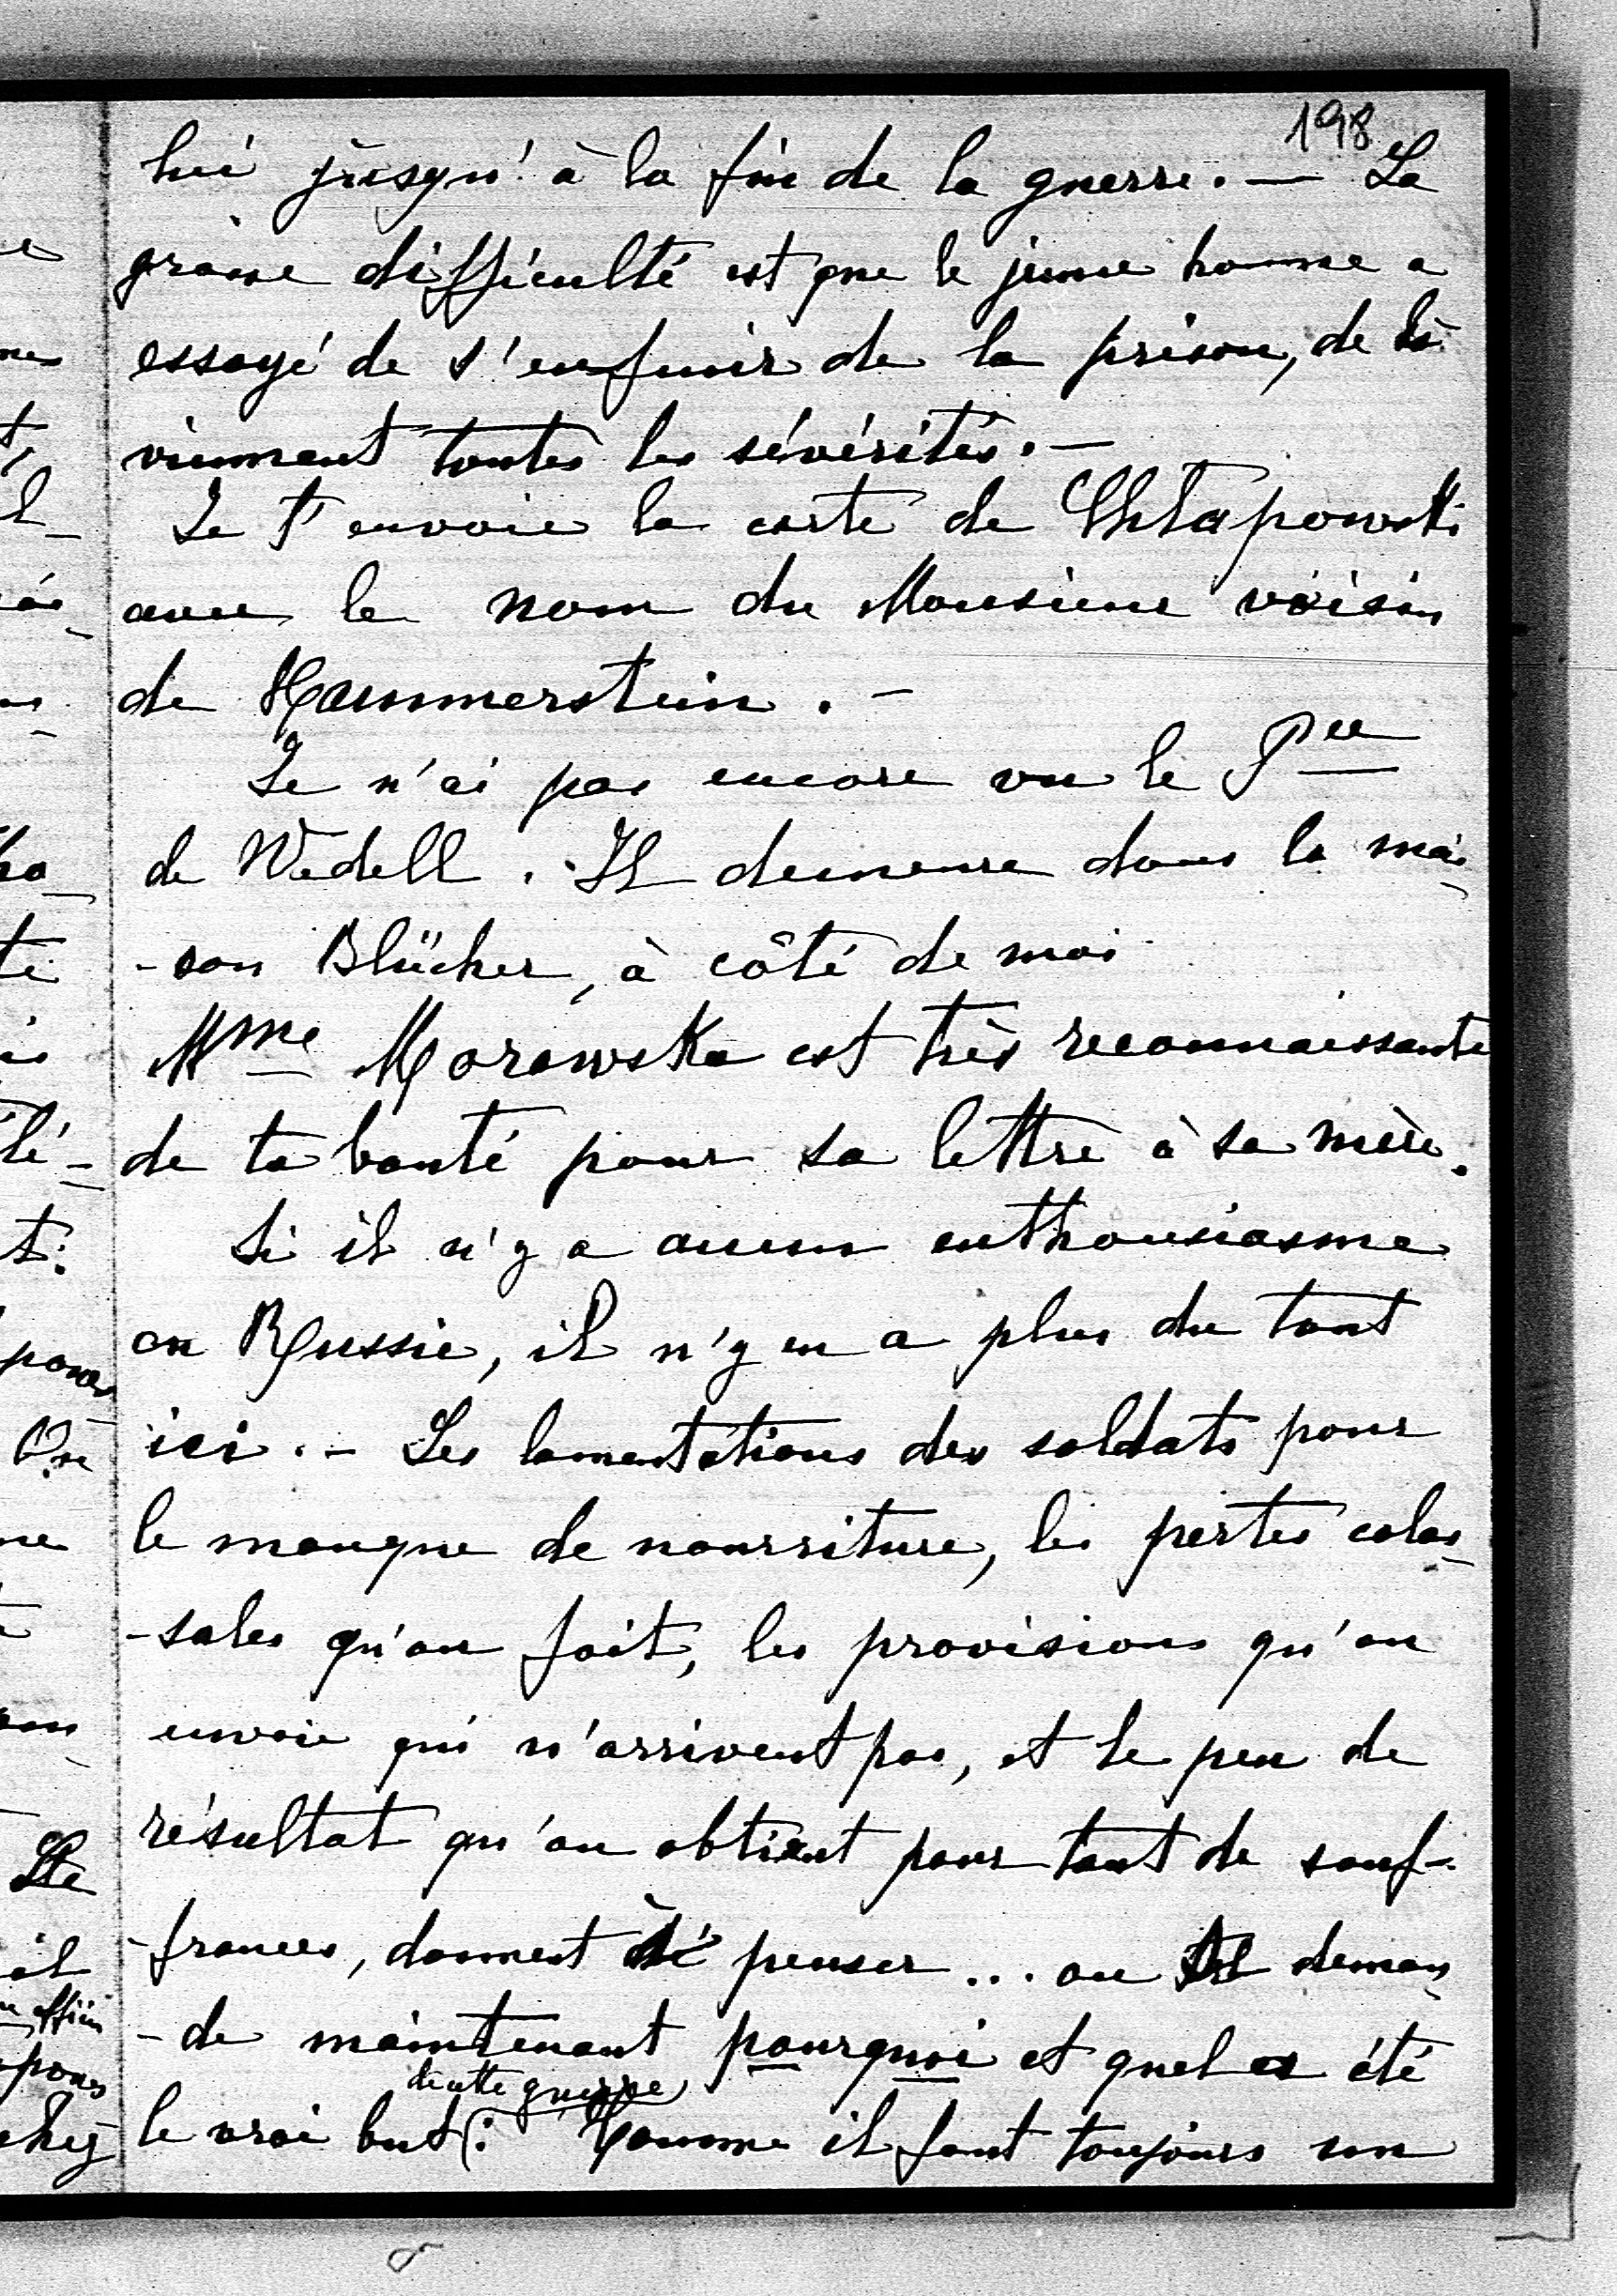 198
lui jusqu'à la fin de la guerre. — La
grave difficulté est que le jeune homme a
essayé de s'enfuir de la prison, de là
viennent toutes les sévérités. —
Je t'envoie la carte de Chłapowski
avec le nom du Monsieur voisin
de Hammerstein. —
Je n'ai pas encore vu le Pce
de Wedell. Il demeure dans la mai-
-son Blücher, à côté de moi
Mme Morawska est très reconnaissante
de ta bonté pour sa lettre à sa mère.
Si il n'y a aucun enthousiasme
en Russie, il n'y en a plus du tout
ici. — Les lamentations des soldats pour
le manque de nourriture, les pertes colos-
-sales qu'on fait, les provisions qu'on
envoie qui n'arrivent pas, et le peu de
résultat qu'on obtient pour tant de souf-
-frances, donnent à penser ... on se deman-
-de maintenant pourquoi et quel a été
de cette guerre
le vrai but : Comme il faut toujours un